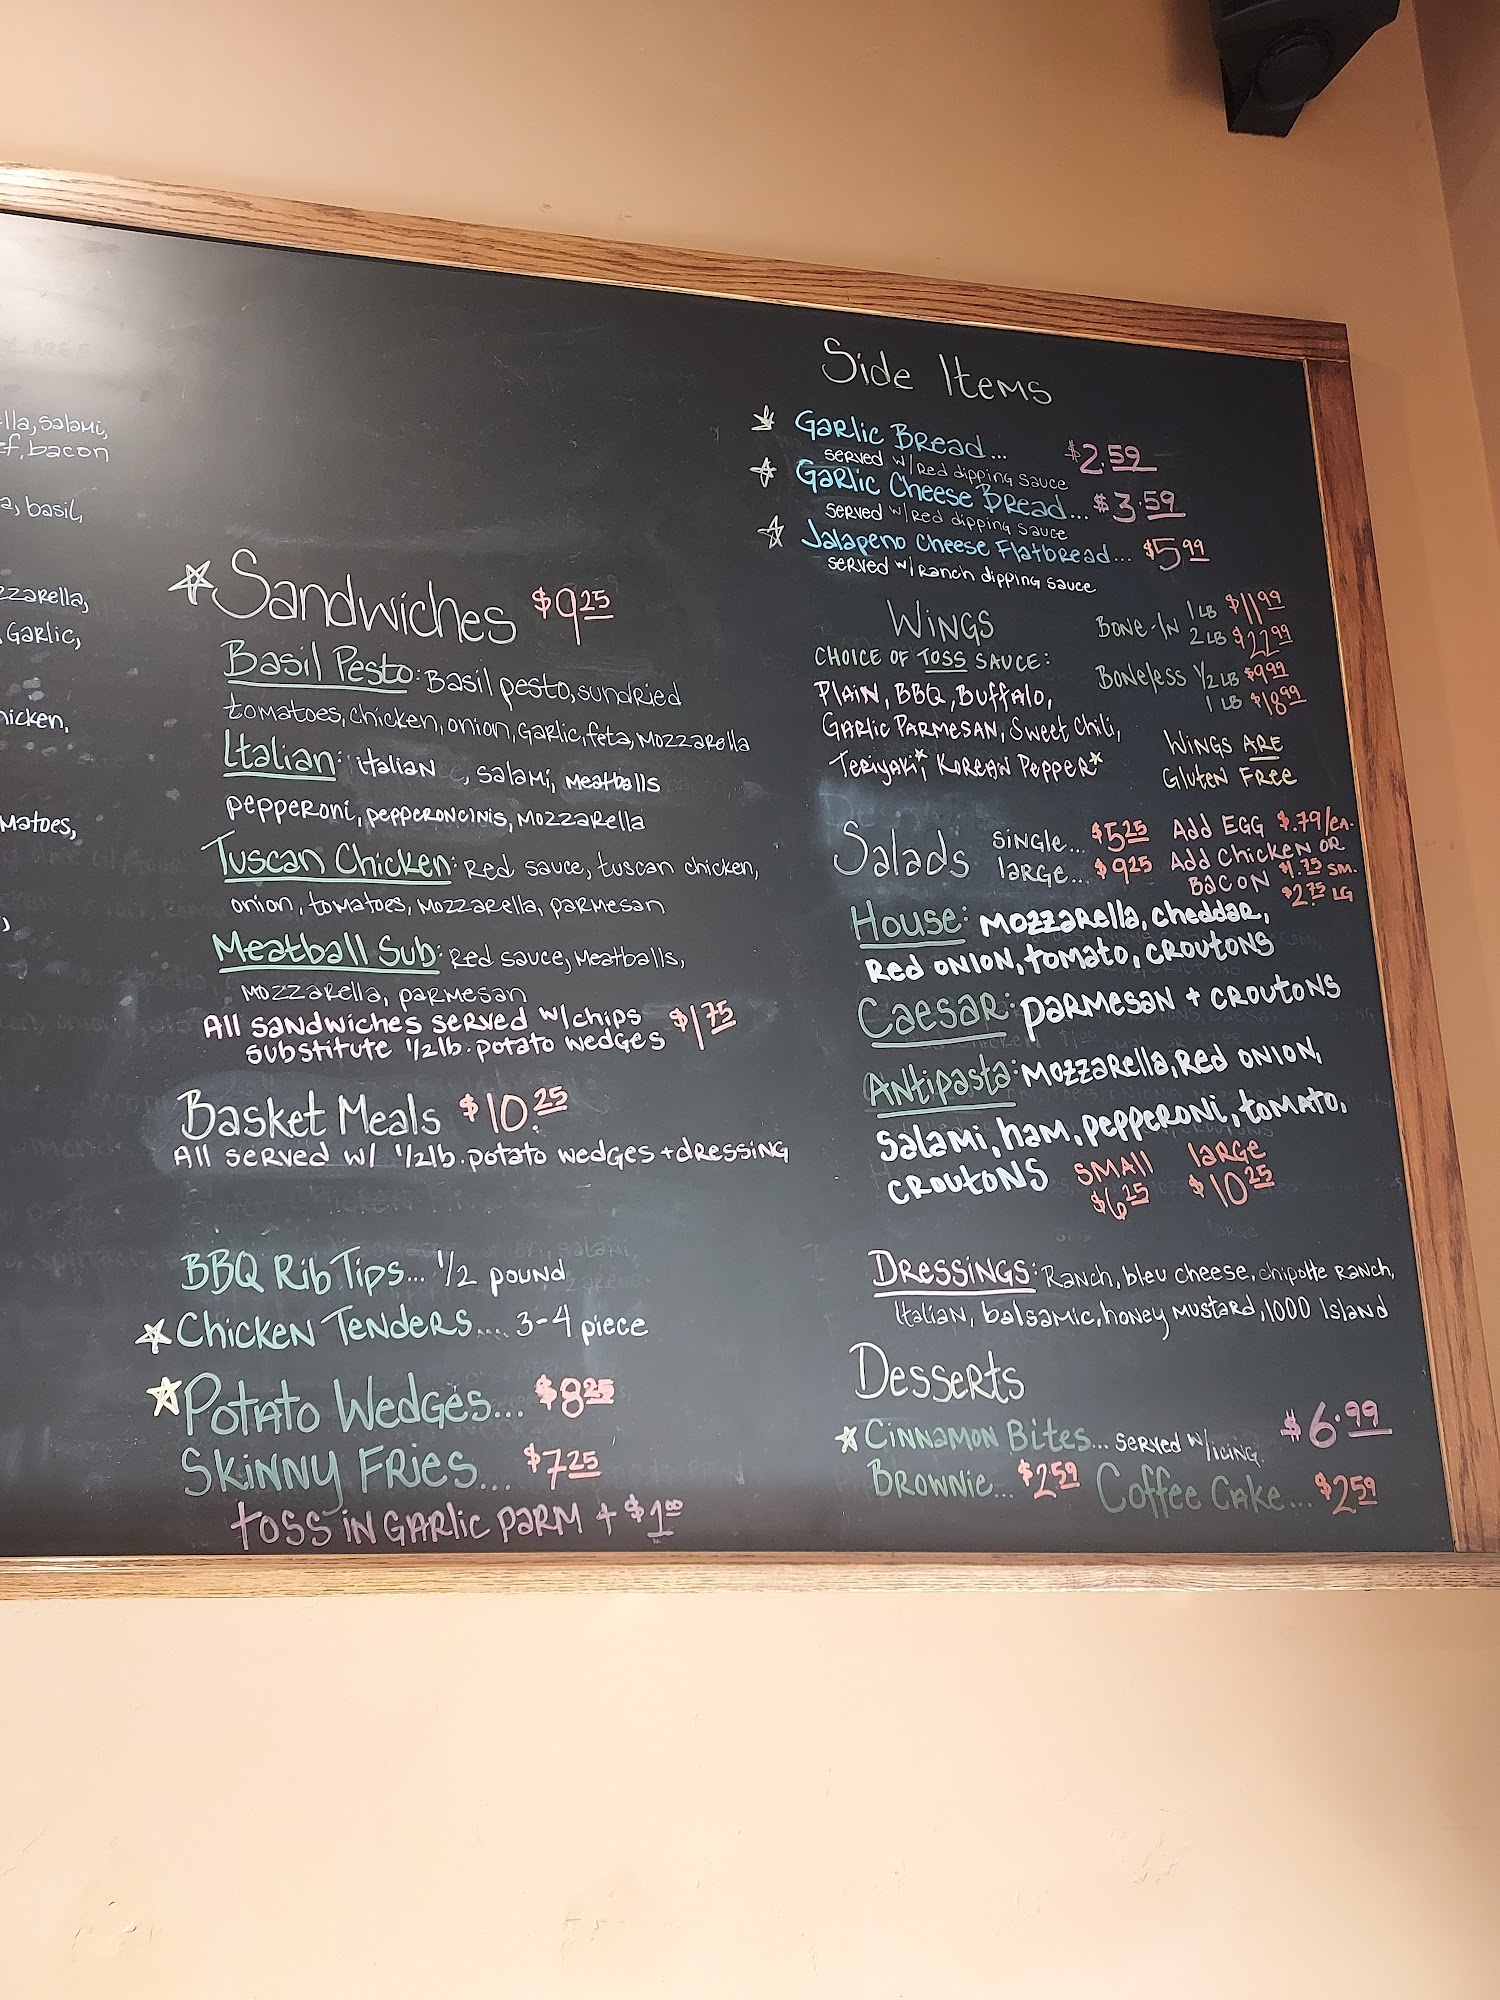 lla, salami,
ef, bacon
a, basil,
zzarella,
Garlic,
hicken,
matoes,
Sandwiches $9.25
Basil Pesto: Basil pesto, sundried
tomatoes, chicken, onion, Garlic, feta, Mozzarella
Italian: italian , salami, Meatballs
pepperoni, pepperoncinis, Mozzarella
Tuscan Chicken: Red sauce, tuscan chicken,
onion, tomatoes, Mozzarella, parmesan
Meatball Sub: Red sauce, Meatballs,
Mozzarella, parmesan
All sandwiches served w/chips
substitute 1/2lb. potato wedges $1.75
Basket Meals $10.25
All served w/ 1/2lb. potato wedges + dressing
BBQ Rib Tips... 1/2 pound
Chicken Tenders.... 3-4 piece
Potato Wedges... $8.25
Skinny Fries... $7.25
toss in Garlic Parm + $1.00
Side Items
Garlic Bread... $2.59
served w/Red dipping sauce
Garlic Cheese Bread... $3.59
served w/Red dipping sauce
Jalapeno Cheese Flatbread... $5.99
served w/Ranch dipping sauce
Wings
Bone-In 1 LB $11.99
2 LB $22.99
Boneless 1/2 LB $9.99
1 LB $18.99
Choice of Toss Sauce:
Plain, BBQ, Buffalo,
Garlic Parmesan, Sweet Chili,
Teriyaki*, Korean Pepper*
Wings ARE
Gluten Free
Salads single... $5.25
large... $9.25
Add EGG $.79/ea.
Add Chicken or
Bacon $1.75 sm.
$2.75 LG
House: Mozzarella, cheddar,
Red onion, tomato, croutons
Caesar: Parmesan + croutons
Antipasta: Mozzarella, Red onion,
salami, ham, pepperoni, tomato,
croutons
small large
$6.25 $10.25
Dressings: Ranch, bleu cheese, chipotle ranch,
Italian, balsamic, honey mustard, 1000 Island
Desserts
Cinnamon Bites... served w/icing. $6.99
Brownie... $2.59 Coffee Cake... $2.59